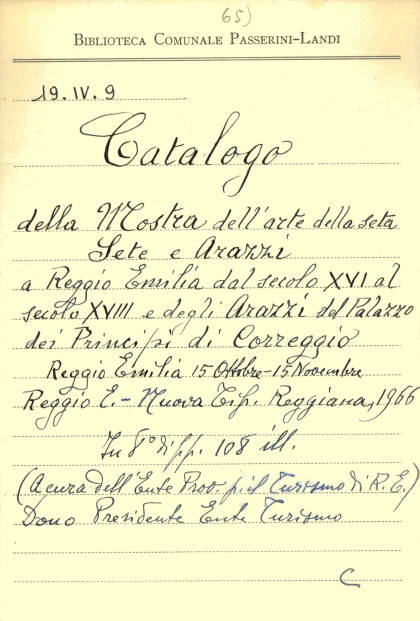 65)
BIBLIOTECA COMUNALE PASSERINI-LANDI
19.IV.9
Catalogo
della Mostra dell'arte della seta
Sete e Arazzi
a Reggio Emilia dal secolo XVI al
secolo XVIII e degli Arazzi del Palazzo
dei Principi di Correggio
Reggio Emilia 15 Ottobre-15 Novembre
Reggio E. - Nuova Tip. Reggiana, 1966
In 8° di pp. 108 ill.
(A cura dell'Ente Prov. p. il Turismo di R.E.)
Dono Presidente Ente Turismo
C